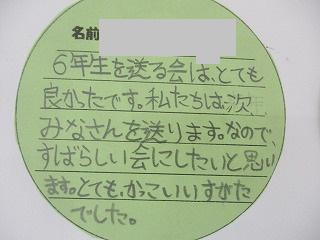 名前
6年生を送る会は、とても
良かったです。私たちは、次、
みなさんを送ります。なので、
すばらしい会にしたいと思い
ます。とても、かっこいいすがた
でした。